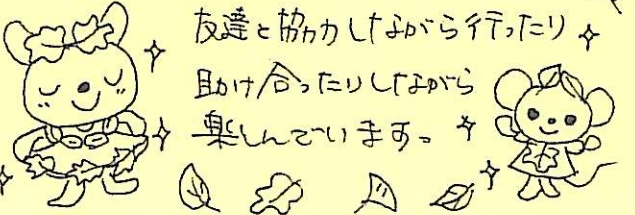 友達と協力しながら行ったり
助け合ったりしながら
楽しんでいます。